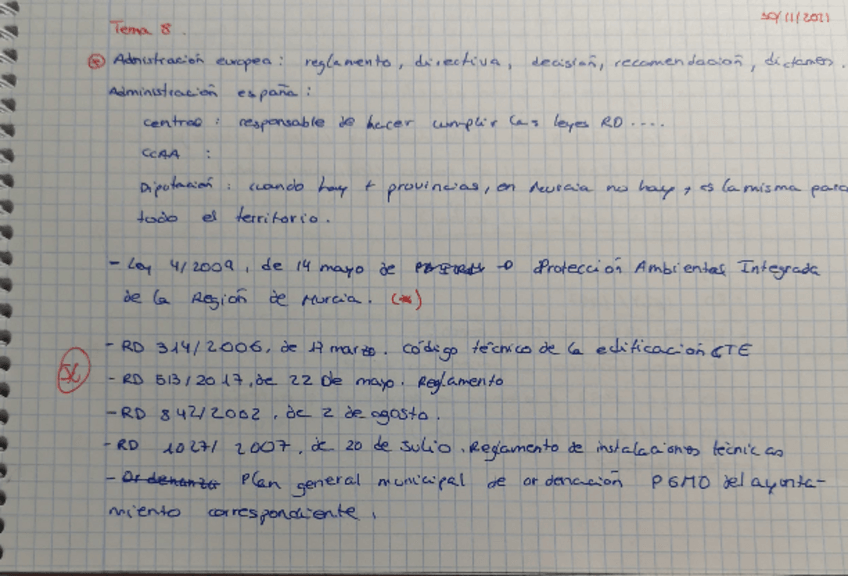 30/11/2021
Tema 8.
* Adnistración europea: reglamento, directiva, decisión, recomendación, dictamen.
Administración españa:
central: responsable de hacer cumplir las leyes RD ....
CCAA :
Diputación: cuando hay + provincias, en Murcia no hay, es la misma para
todo el territorio.
- Ley 4/2009, de 14 mayo de → Protección Ambiental Integrada
de la Región de Murcia. (*)
- RD 314/2006, de 17 marzo. Código técnico de la edificación CTE
- RD 513/2017, de 22 De mayo. Reglamento
- RD 842/2002, de 2 de agosto.
- RD 1027/2007, de 20 de Julio. Reglamento de instalaciones técnicas
- Ordenanza Plan general municipal de ordenación PGMO del ayunta-
miento correspondiente.